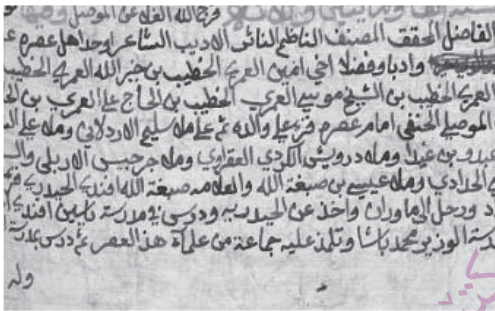 فرج الله الفلاعي الموصلي وفيها
الفاضل المحقق المصنف الناظم الناثر الاديب الشاعر اوحد اهل عصره
وادبا وفضلا اخي امين العمري الخطيب بن خير الله العمري الخطيب
العمري الخطيب بن الشيخ موسى العمري الخطيب بن الحاج علي العمري بن
الموصلي الحنفي امام عصره قرء علي والده ثم على ملا سليم الاردلاني وملا علي
عبدو بن غيدا وملا درويش الكردي العقراوي وملا جرجيس الاربلي
الجلادي وملا عيسى بن صبغة الله والعلامه صبغة الله افندي الحيدري
ورحل الى ماوران واخذ عن الحيدريه ودرس في مدرسة ياسين افندي
الوزير محمد باشا وتلمذ عليه جماعة من علمآء هذا العصر ثم درس
وله